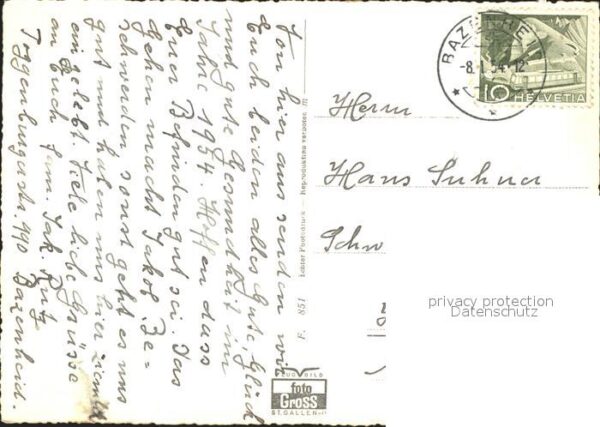 Von hier aus senden wir
Euch beiden alles Gute, Glück
und gute Gesundheit im
Jahre 1954. Hoffen dass
Euer Befinden gut sei. Das
Gehen macht Jakob. Be=
schwerden sonst geht es uns
gut und haben uns hier ziemlich
eingelebt. Viele liebe Grüsse
an Euch Fam. Jak. Rutz
Toggenburgstr. 190 Bazenheid.
F. 851 Echter Photodruck – Reproduktion verboten
FLUGBILD
foto
Gross
ST. GALLEN
BAZENHEID
-8. I. 54.-12
10 HELVETIA
Herrn
Hans Suhner
Schw
privacy protection
Datenschutz